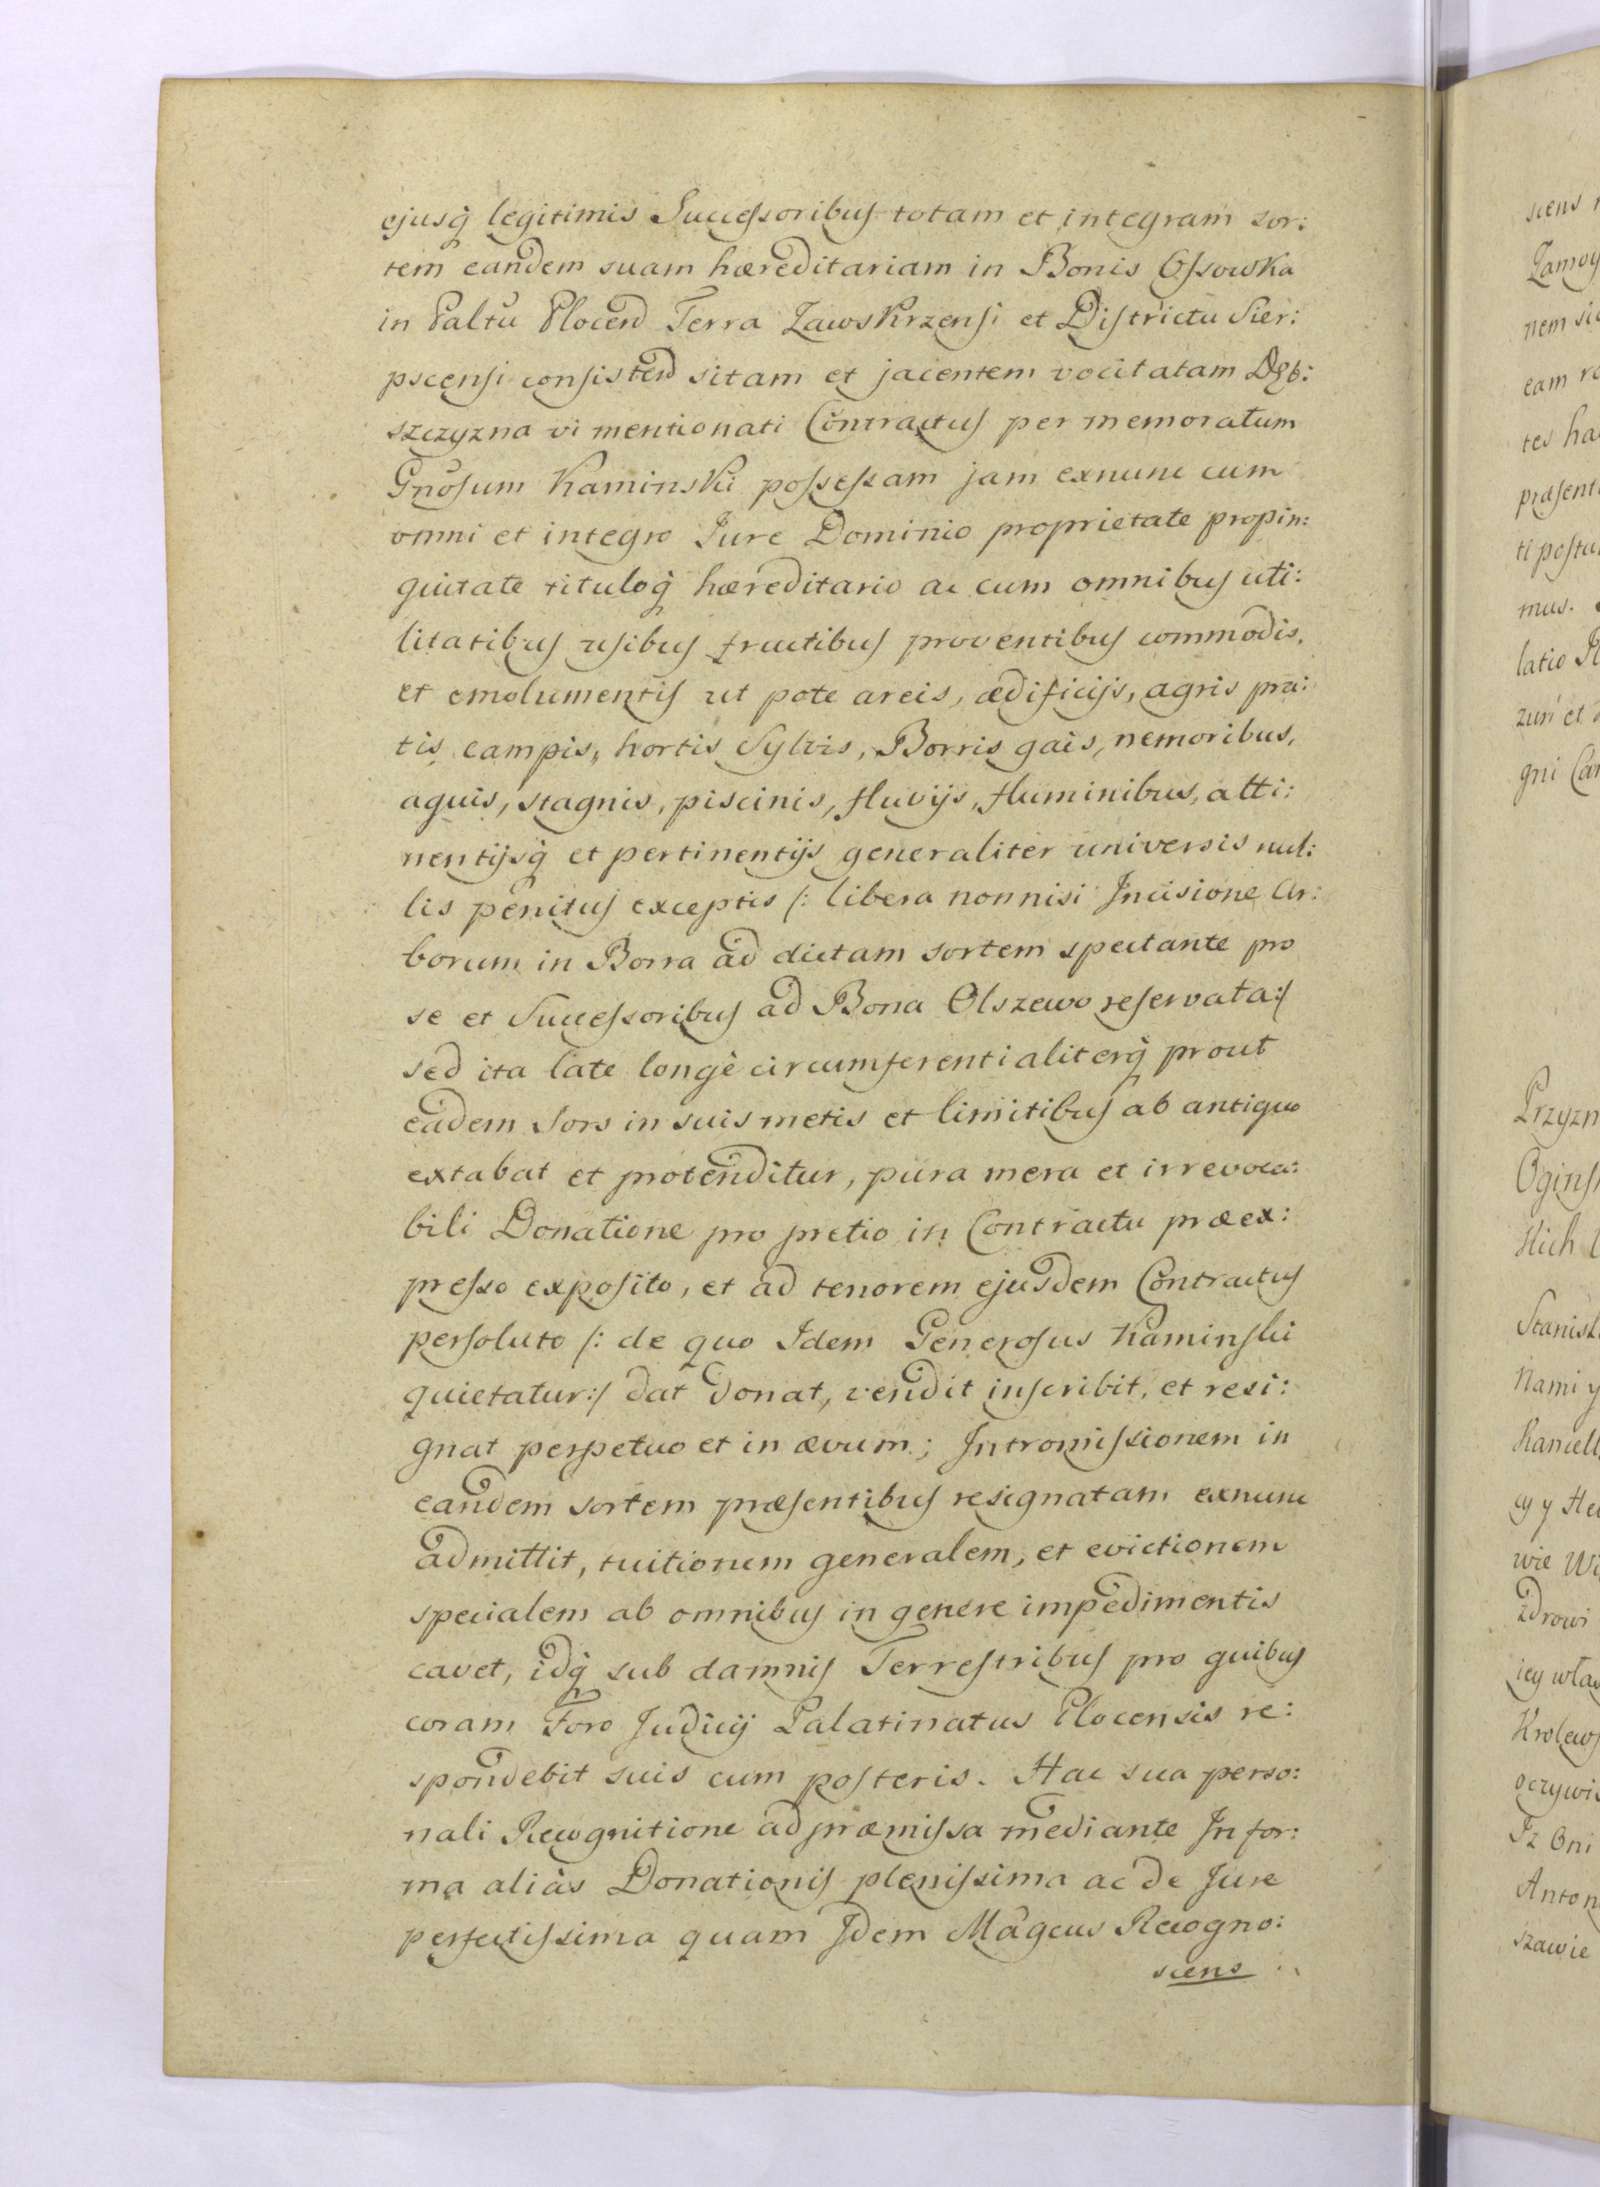 ejusq̀ legitimis Successoribus totam et integram sor:
tem eandem suam hæreditariam in Bonis Ossowka
in Paltu Plocen Terra Zawskrzensi et Districtu Sier:
pscensi consisten sitam et jacentem vocitatam Dęb:
szczyzna vi mentionati Contractus per memoratum
Gnosum Kaminski possessam jam exnunc cum
omni et integro Jure Dominio proprietate propin:
quitate tituloq̀ hæreditario ac cum omnibus uti:
litatibus usibus fructibus proventibus commodis,
et emolumentis ut pote areis, ædificijs, agris pra:
tis campis, hortis Sylvis, Borris gais, nemoribus,
aquis, stagnis, piscinis, fluvijs, fluminibus, atti:
nentijsq̀ et pertinentijs generaliter universis nul:
lis penitus exceptis /: libera nonnisi Incisione Ar:
borum in Borra ad dictam sortem spectante pro
se et Successoribus ad Bona Olszewo reservata :/
sed ita late longè circumferentialiterq̀ prout
eadem Sors in suis metis et limitibus ab antiquo
extabat et protenditur, pura mera et irrevoca:
bili Donatione pro pretio in Contractu præex:
presso exposito, et ad tenorem ejusdem Contractus
persoluto /: de quo Idem Generosus Kaminski
quietatur :/ dat donat, vendit inscribit, et resi:
gnat perpetuo et in ævum; Intromissionem in
eandem sortem præsentibus resignatam exnunc
admittit, tuitionem generalem, et evictionem
specialem ab omnibus in genere impedimentis
cavet, idq̀ sub damnis Terrestribus pro quibus
coram Foro Judicij Palatinatus Plocensis re:
spondebit suis cum posteris. Hac sua perso:
nali Recognitione ad præmissa mediante In for:
ma aliàs Donationis plenissima ac de Jure
perfectissima quam Idem Magcus Recogno:
scens
sciens
Zamoy
nem sic
eam
tes
præsent
ti postu
mus.
latio
zuń et
gni
Przyzn
Ogins
skich
Stanisł
nami y
Kancell
cy y
wie
zdrowi
icy wła
Krolews
oczywis
Iz Oni
Anton
szawie